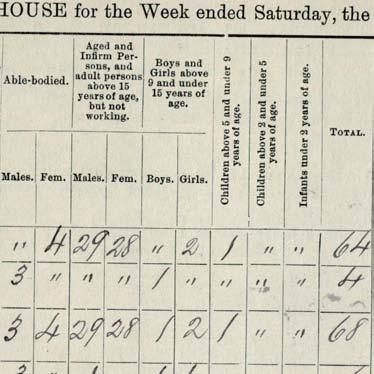 HOUSE for the Week ended Saturday, the
Able-bodied.
Aged and
Infirm Per-
sons, and
adult persons
above 15
years of age,
but not
working.
Boys and
Girls above
9 and under
15 years of
age.
Children above 5 and under 9
years of age.
Children above 2 and under 5
years of age.
Infants under 2 years of age.
TOTAL.
Males. Fem. Males. Fem. Boys. Girls.
" 4 29 28 " 2 1 " " 64
3 " " " 1 " " " " 4
3 4 29 28 1 2 1 " " 68